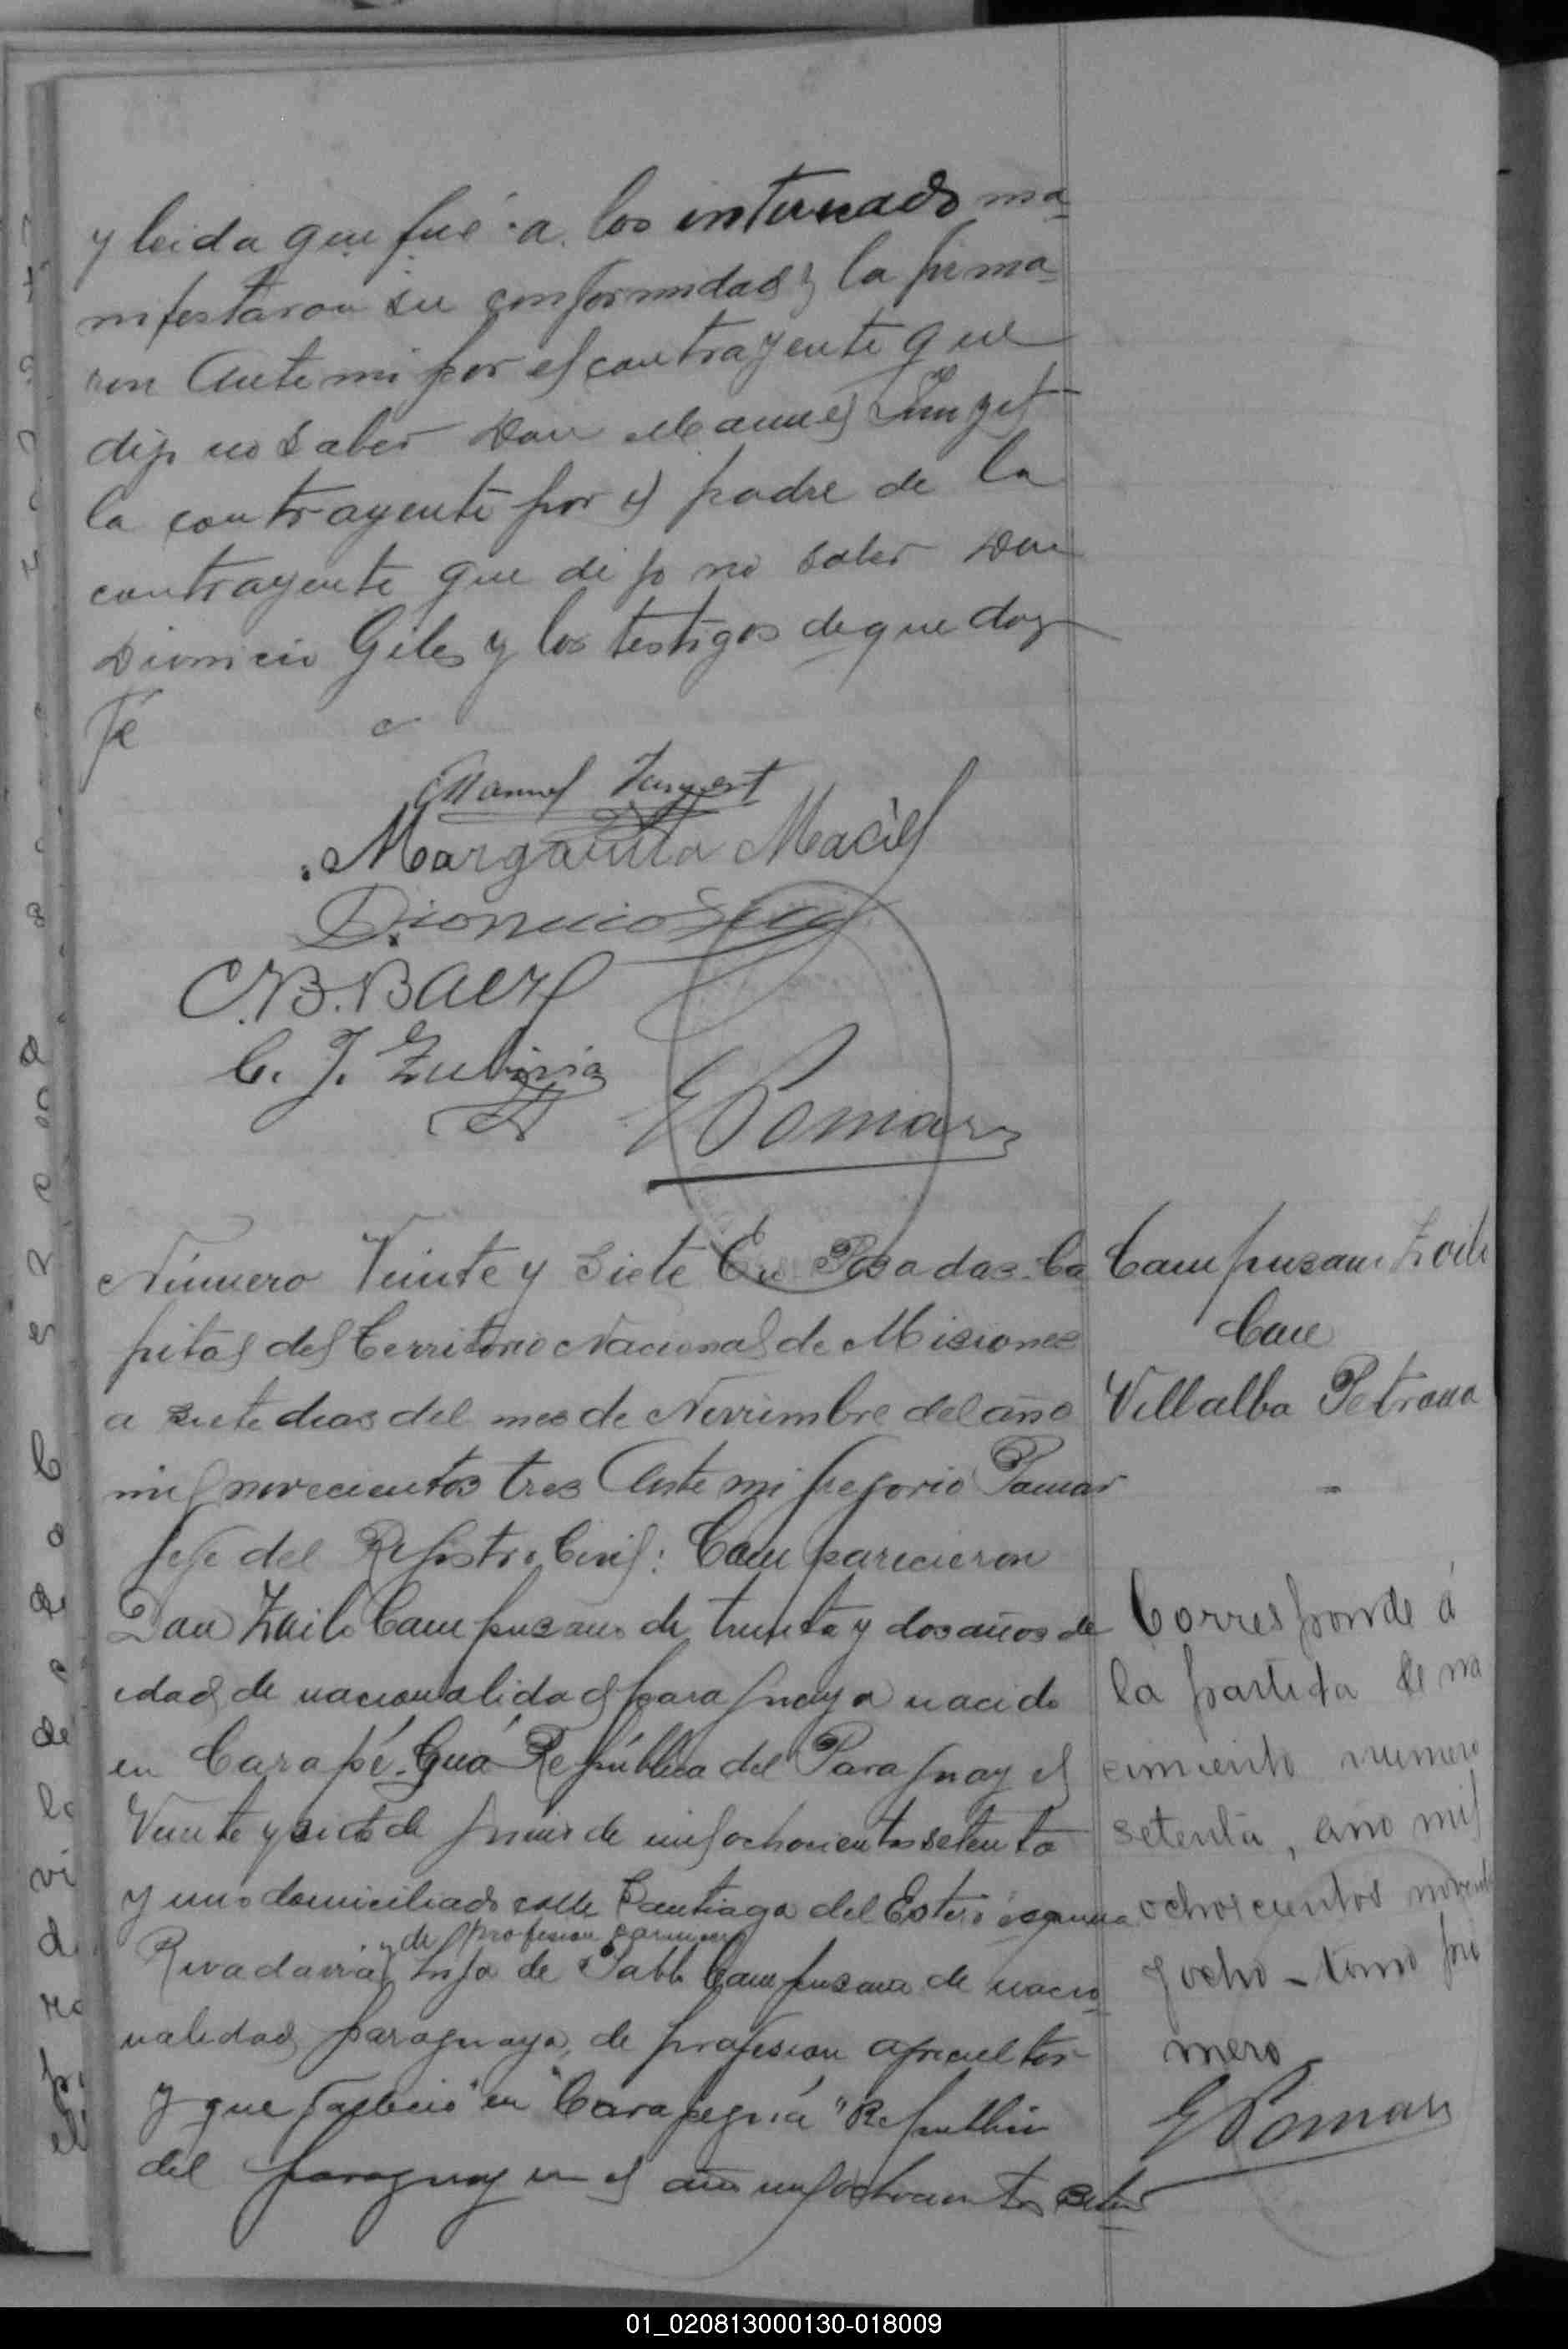 y leida que fué a los interesado ma-
nifestaron su conformidad y la firma-
ron Ante mi por el contrayente que
dijo no saber Don Manuel
la contrayente por el padre de la
contrayente que dijo no saber Don
Dionicio Giles y los testigos de que doy
Fé
Manuel
Margarita Maciel
Dionicio
C.B. Baez
C. J. Zubiria
G Pomar
Número Veinte y Siete En Posadas Ca
pital del Territorio Nacional de Misiones
a siete dias del mes de Noviembre del año
mil novecientos tres Ante mi Gregorio Pomar
Jefe del Registro Civil: Comparecieron
Don Zoilo Campusano de treinta y dos años de
edad, de nacionalidad paraguaya nacido
en Carapé-Guá República del Paraguay el
Veinte y siete de Junio de mil ochocientos setenta
y uno domiciliado calle Santiago del Estero esquina
y de profesion
Rivadavia, hijo de Pablo Campusano de nacio-
nalidad paraguaya, de profesion agricultor
y que fallecio en "Carapeguá" Republica
del Paraguay en el año mil ochocientos seten-
Campusano Zoilo
Con
Villalba Petrona
Corresponde á
la partida de na
cimiento numero
setenta, año mil
ochocientos noventa
y ocho - tomo pri
mero
G Pomar
01_020813000130-018009